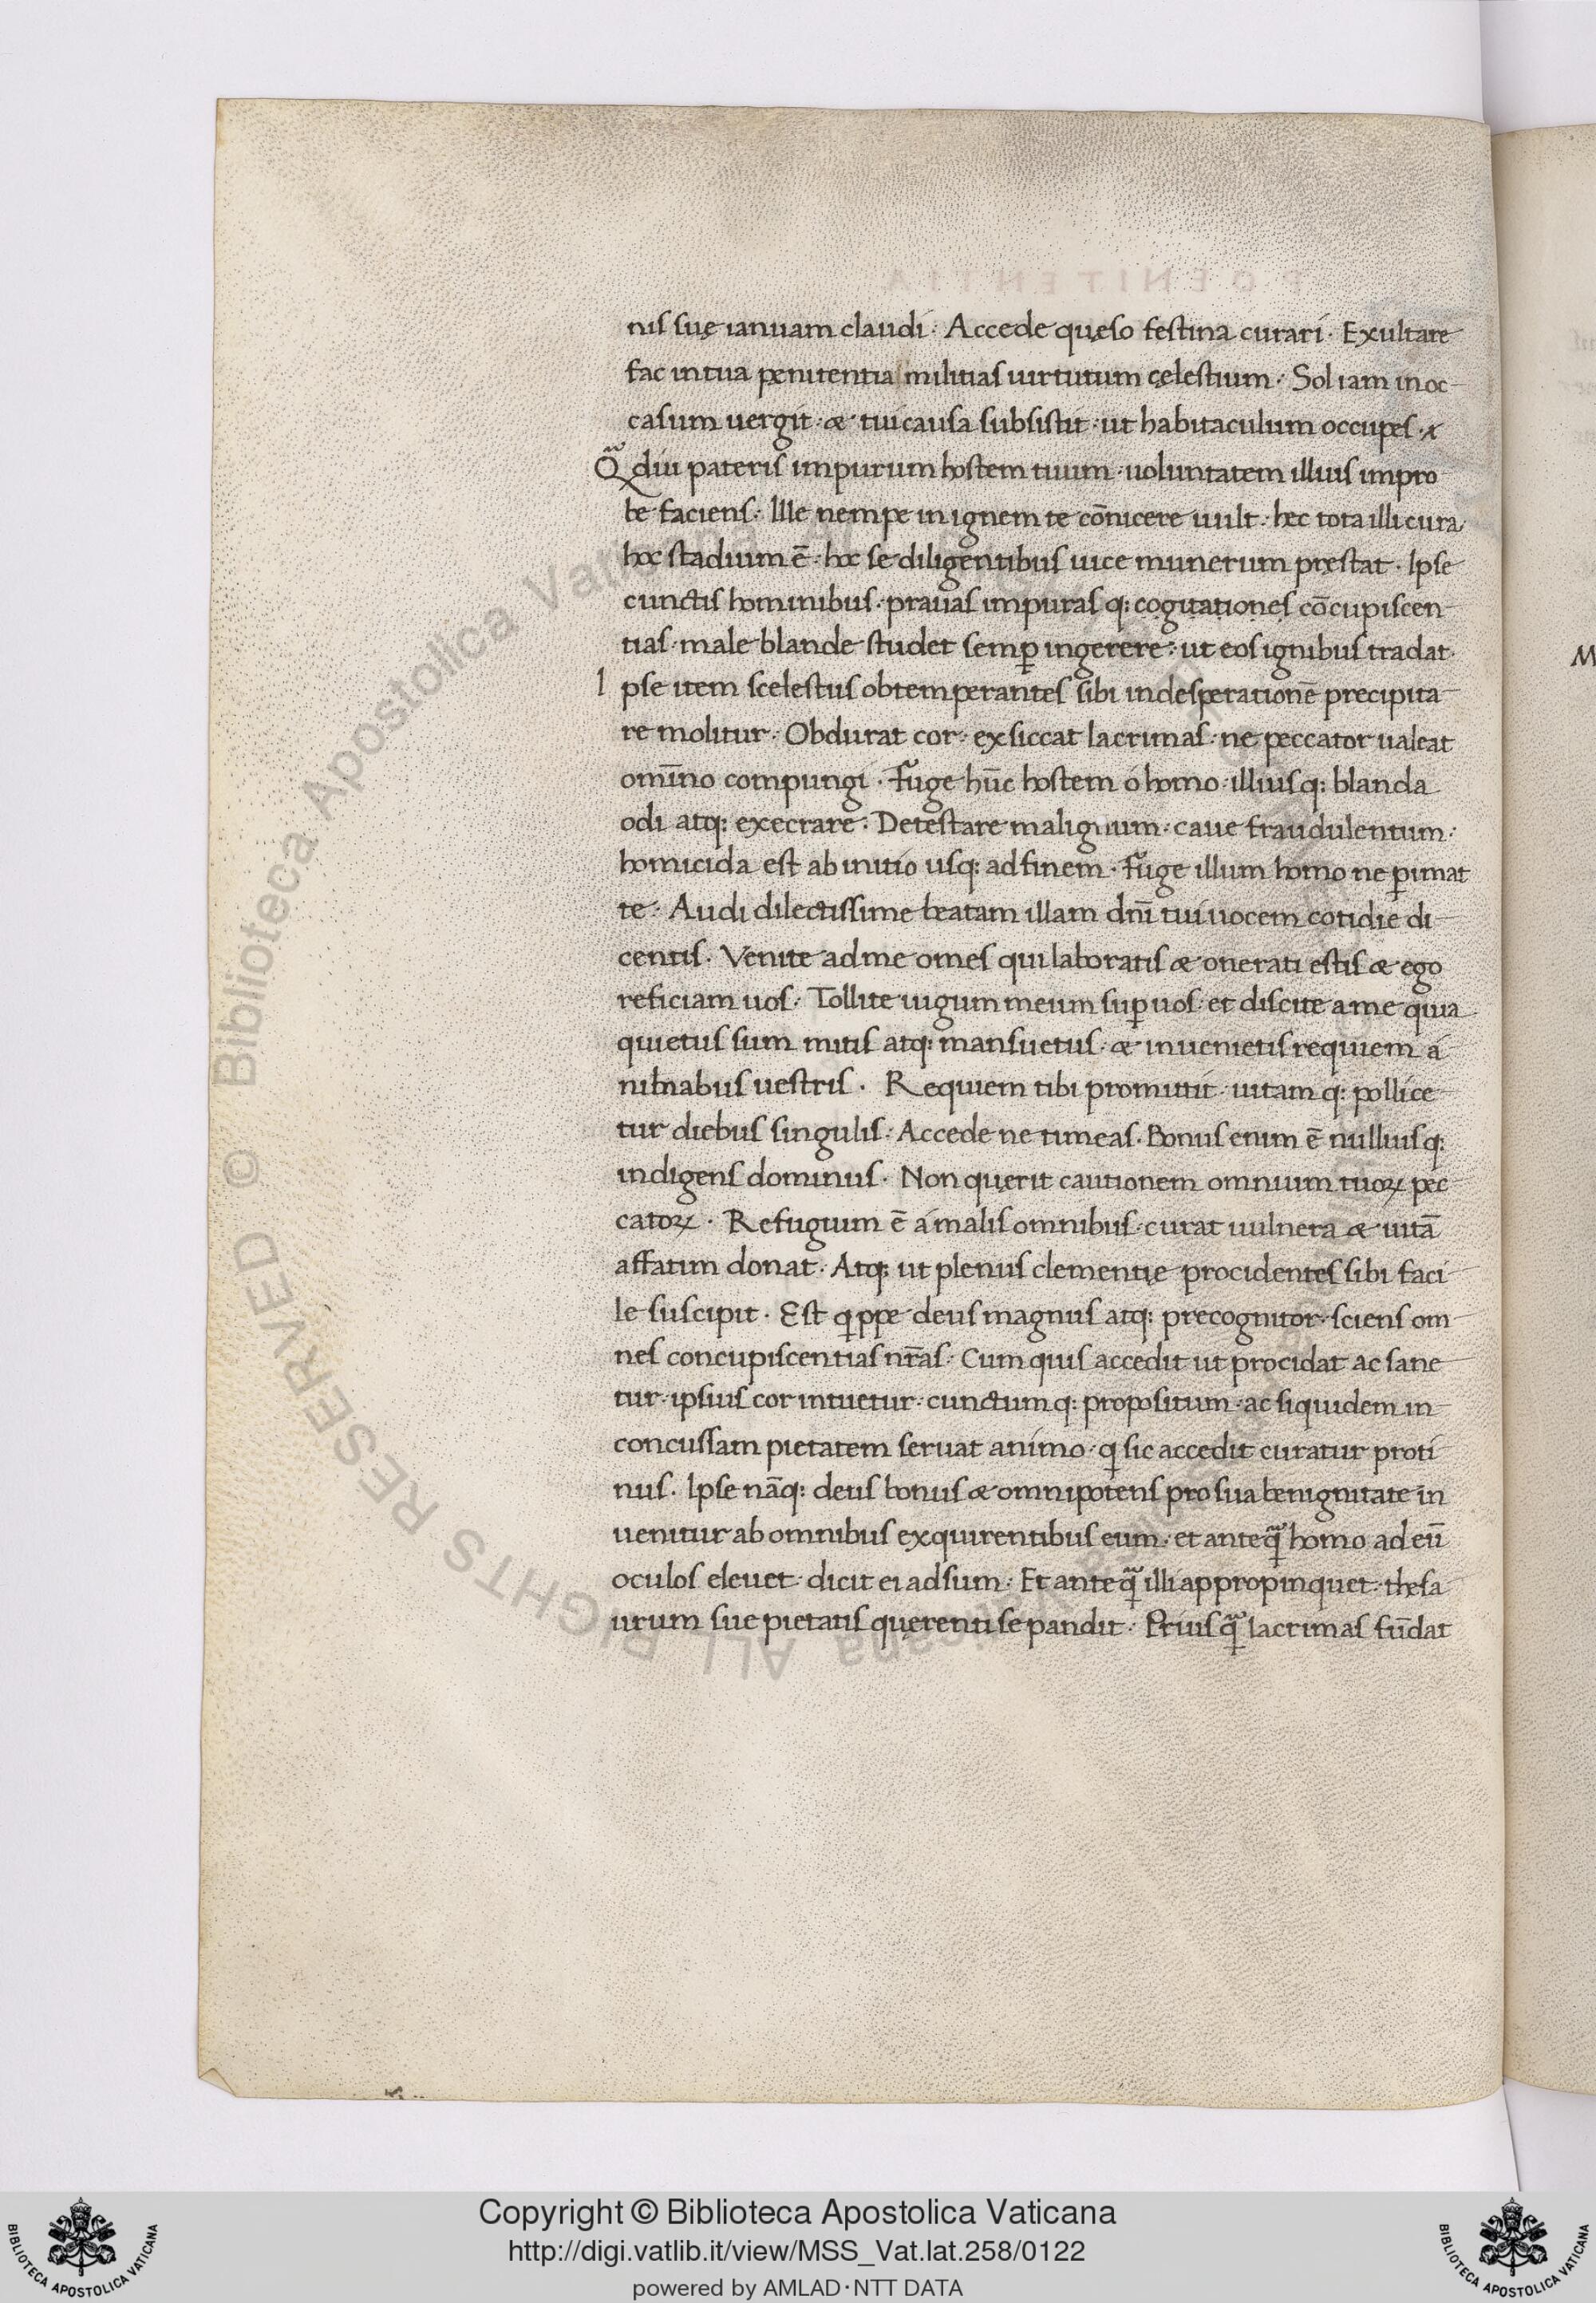 nis suę ianuam claudi. Accede quęso festina curari. Exultare
fac in tua penitentia militias uirtutum cęlestium. Sol iam in oc-
casum uergit. & tui causa subsistit. ut habitaculum occupes.
Qua᷃diu pateris impurum hostem tuum. uoluntatem illius impro
be faciens. Ille nempe in ignem te cōnicere uult. hec tota illi cura.
hoc stadium ē. hoc se diligentibus uice munerum pręstat. Ipse
cunctis hominibus. prauas impuras q: cogitationes cōcupiscen-
tias. male blande studet semꝑ ingerere. ut eos ignibus tradat.
Ipse item scelestus obtemperantes sibi in desperationē precipita-
re molitur. Obdurat cor. exsiccat lacrimas. ne peccator ualeat
omīno compungi. Fuge hūc hostem ó homo. illiusq: blanda
odi atq: execrare. Detestare malignum. caue fraudulentum.
homicida est ab initio usq: ad finem. Fuge illum homo ne ꝑimat
te. Audi dilectissime beatam illam dnī tui uocem cotidie di-
centis. Venite ad me omes qui laboratis & onerati estis & ego
reficiam uos. Tollite iugum meum suꝑ uos. et discite a me quia
quietus sum mitis atq: mansuetus. & inuenietis requiem á
nimabus uestris. Requiem tibi promittit. uitam q: pollice-
tur diebus singulis. Accede ne timeas. Bonus enim ē nullius q:
indigens dominus. Non quęrit cautionem omnium tuoꝝ pec
catoꝝ. Refugium ē á malis omnibus. curat uulnera & uitā
affatim donat. Atq: ut plenus clementię procidentes sibi faci
le suscipit. Est qͥppe deus magnus atq: precognitor. sciens om-
nes concupiscentias nr̄as. Cum quis accedit ut procidat ac sane-
tur. ipsius cor intuetur. cunctum q: propositum. ac siquidem in-
concussam pietatem seruat animo. qͥ sic accedit curatur proti
nus. Ipse nāq: deus bonus & omnipotens pro sua benignitate in
uenitur ab omnibus exquirentibus eum. et anteqᷓ homo ad eū
oculos eleuet. dicit ei adsum. Et anteqᷓ illi appropinquet. thęsa
urum sue pietatis quęrenti se pandit. Priusqᷓ lacrimas fūdat
Copyright © Biblioteca Apostolica Vaticana
http://digi.vatlib.it/view/MSS_Vat.lat.258/0122
powered by AMLAD·NTT DATA